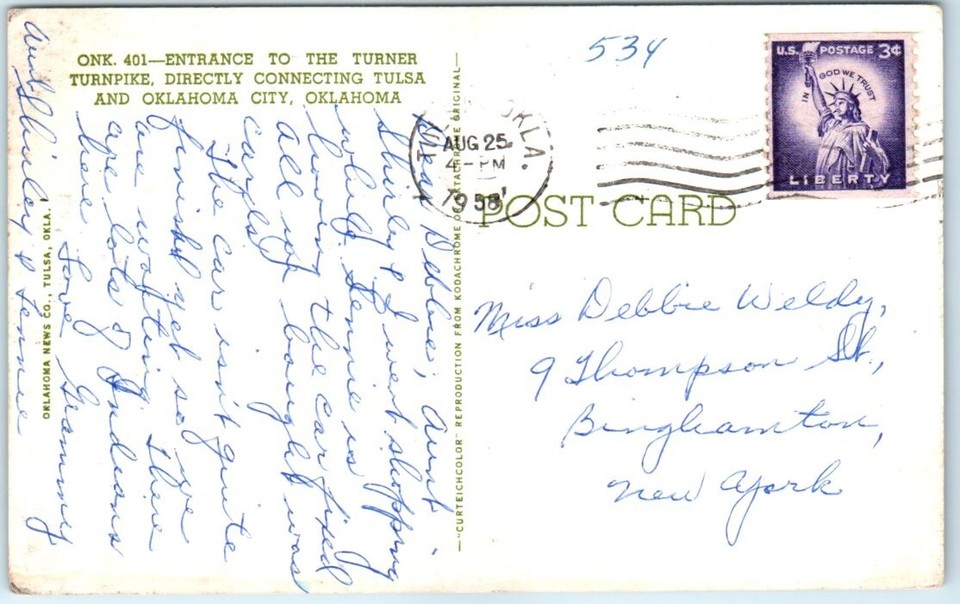 ONK. 401—ENTRANCE TO THE TURNER
TURNPIKE, DIRECTLY CONNECTING TULSA
AND OKLAHOMA CITY, OKLAHOMA
Dear Debbie, Aunt
Shirley & I went shopping
while Lennie is
having the car fixed
All we bought was
cards.
The car isn't quite
finished yet so we
are waiting. There
are lots of Indians
here.
Love Grammy
Aunt Shirley & Lennie
OKLAHOMA NEWS CO., TULSA, OKLA.
—"CURTEICHCOLOR" REPRODUCTION FROM KODACHROME OR EKTACHROME ORIGINAL—
534
OKLA.
AUG 25
4 - PM
1958
U.S. POSTAGE 3¢
IN GOD WE TRUST
LIBERTY
POST CARD
Miss Debbie Weldy,
9 Thompson St.,
Binghamton,
New York